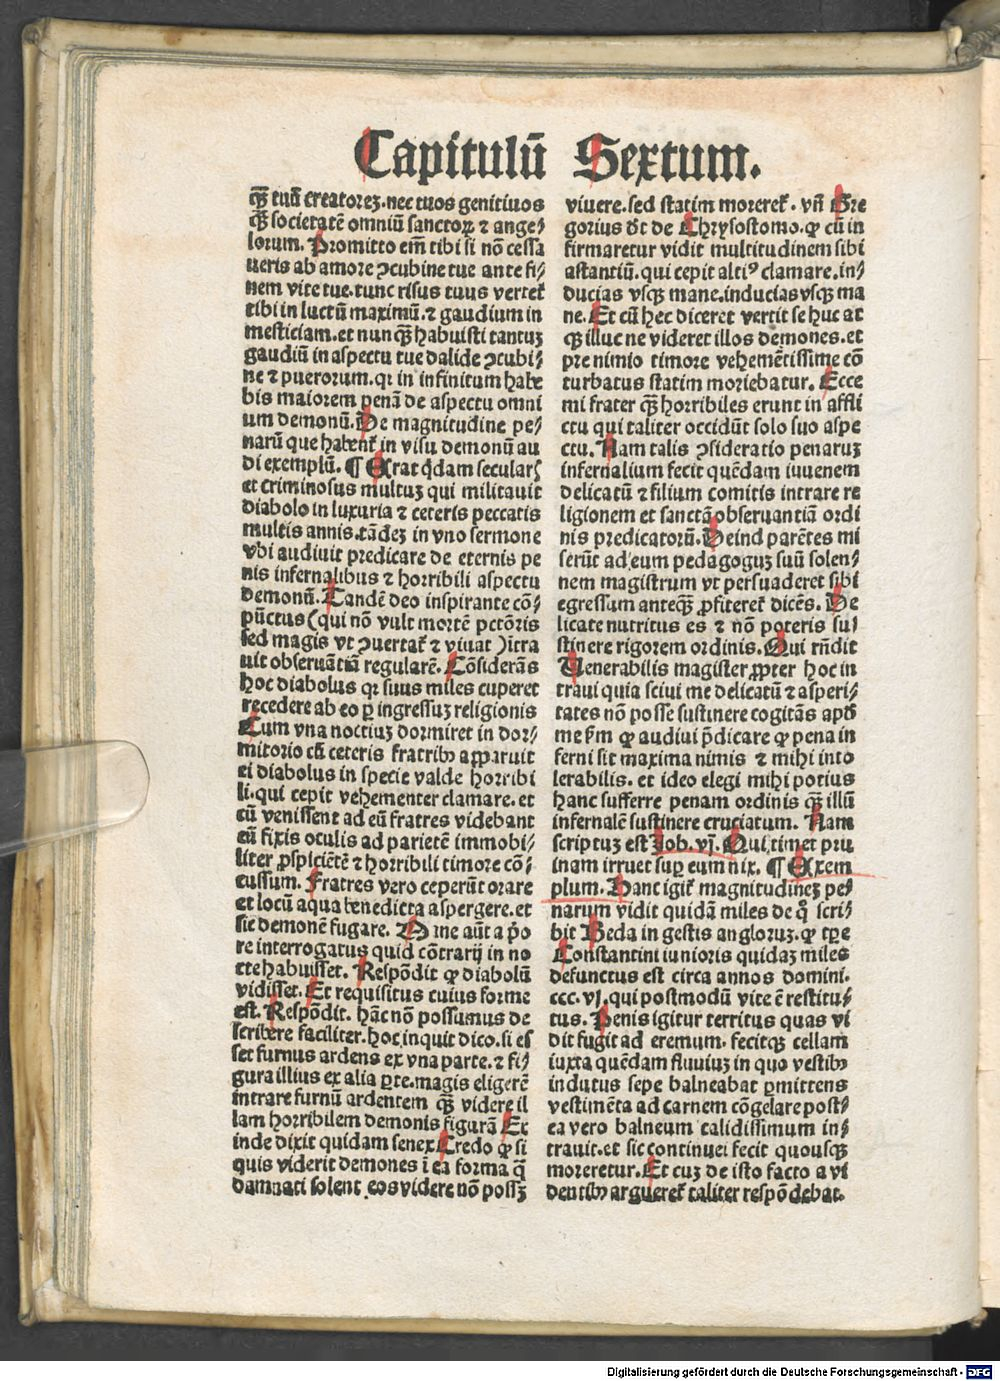 Capitulū Sextum.
q̄ȝ tuū creatoreȝ. nec tuos genitiuos
q̄ȝ societatē omniū sanctoꝝ ⁊ ange⸗
lorum. Promitto em̄ tibi si nō cessa
ueris ab amore ꝯcubine tue ante fi⸗
nem vite tue. tunc risus tuus verteẗ
tibi in luctū maximū. ⁊ gaudium in
mesticiam. et nunq̄ȝ habuisti tantuȝ
gaudiū in aspectu tue dalide ꝯcubi⸗
ne ⁊ puerorum. qꝛ in infinitum habe
bis maiorem penā de aspectu omni
um demonū. De magnitudine pe⸗
narū que habent̄ in visu demonū au
di exemplū. ¶ Erat q̇dam secularꝭ
et criminosus multuȝ qui militauit
diabolo in luxuria ⁊ ceteris peccatis
multis annis. tādeȝ in vno sermone
vbi audiuit predicare de eternis pe
nis infernalibus ⁊ horribili aspectu
demonū. Tandē deo inspirante cō⸗
pūctus (qui nō vult mortē pctōris
sed magis vt ꝯuertat̄ ⁊ viuat) ītra
uit obseruātiā regularē. Cōsiderās
hoc diabolus qꝛ suus miles cuperet
recedere ab eo ꝑ ingressuȝ religionis
Cum vna noctiuȝ dormiret in dor⸗
mitorio cū ceteris fratribꝫ apparuit
ei diabolus in specie valde horribi
li. qui cepit vehementer clamare. et
cū venissent ad eū fratres videbant
eū fixis oculis ad parietē immobi⸗
liter ꝓspiciētē ⁊ horribili timore cō⸗
cussum. Fratres vero ceperūt orare
et locū aqua benedicta aspergere. et
sic demonē fugare. Mane aūt a p̄o
re interrogatus quid cōtrarij in no
cte habuisset. Respōdit ꝙ diabolū
vidisset. Et requisitus cuius forme
est. Respōdit. hāc nō possumus de
scribere faciliter. hoc inquit dico. si es
set furnus ardens ex vna parte. ⁊ fi⸗
gura illius ex alia ꝑte. magis eligerē
intrare furnū ardentem q̄ȝ videre il
lam horribilem demonis figurā Et
inde dixit quidam senex Credo ꝙ si
quis viderit demones ī ea forma q̄
damnati solent eos videre nō possȝ
viuere. sed statim moreret̄. vn̄ Gre
gorius dc̄t de Chrysostomo. ꝙ cū in
firmaretur vidit multitudinem sibi
astantiū. qui cepit altiꝰ clamare. in⸗
ducias vsqȝ mane. inducias vsqȝ ma
ne. Et cū hec diceret vertit se huc at
qȝ illuc ne videret illos demones. et
pre nimio timore vehemētissime cō
turbatus statim moriebatur. Ecce
mi frater q̄ȝ horribiles erunt in affli
ctu qui taliter occidūt solo suo aspe
ctu. Nam talis ꝯsideratio penaruȝ
infernalium fecit quēdam iuuenem
delicatū ⁊ filium comitis intrare re
ligionem et sanctā obseruantiā ordi
nis predicatorū. Deind parētes mi
serūt ad eum pedagoguȝ suū solen⸗
nem magistrum vt persuaderet sibi
egressum anteq̄ȝ ꝓfiteret̄ dicēs. De
licate nutritus es ⁊ nō poteris su⸗
stinere rigorem ordinis. Qui rn̄dit
Uenerabilis magister ꝓpter hoc in
traui quia sciui me delicatū ⁊ asperi⸗
tates nō posse sustinere cogitās apd̄
me ip̄m ꝙ audiui p̄dicare ꝙ pena in
ferni sit maxima nimis ⁊ mihi into
lerabilis. et ideo elegi mihi potius
hanc sufferre penam ordinis q̄ȝ illū
infernalē sustinere cruciatum. Nam
scriptuȝ est Job. vj. Qui timet pru
inam irruet suꝑ eum nix. ¶ Exem
plum. Hanc igit̄ magnitudineȝ pe⸗
narum vidit quidā miles de quo scri⸗
bit Beda in gestis angloruȝ. ꝙ tꝑe
Constantini iunioris quidaȝ miles
defunctus est circa annos domini.
ccc. vj. qui postmodū vite ē restitu⸗
tus. Penis igitur territus quas vi
dit fugit ad eremum. fecitqȝ cellam
iuxta quēdam fluuiuȝ in quo vestibꝫ
indutus sepe balneabat ꝑmittens
vestimēta ad carnem cōgelare post⸗
ea vero balneum calidissimum in⸗
trauit. et sic continuei fecit quousqȝ
moreretur. Et cuȝ de isto facto a vi
dentibꝫ argueret̄ taliter respōdebat.
Digitalisierung gefördert durch die Deutsche Forschungsgemeinschaft - DFG